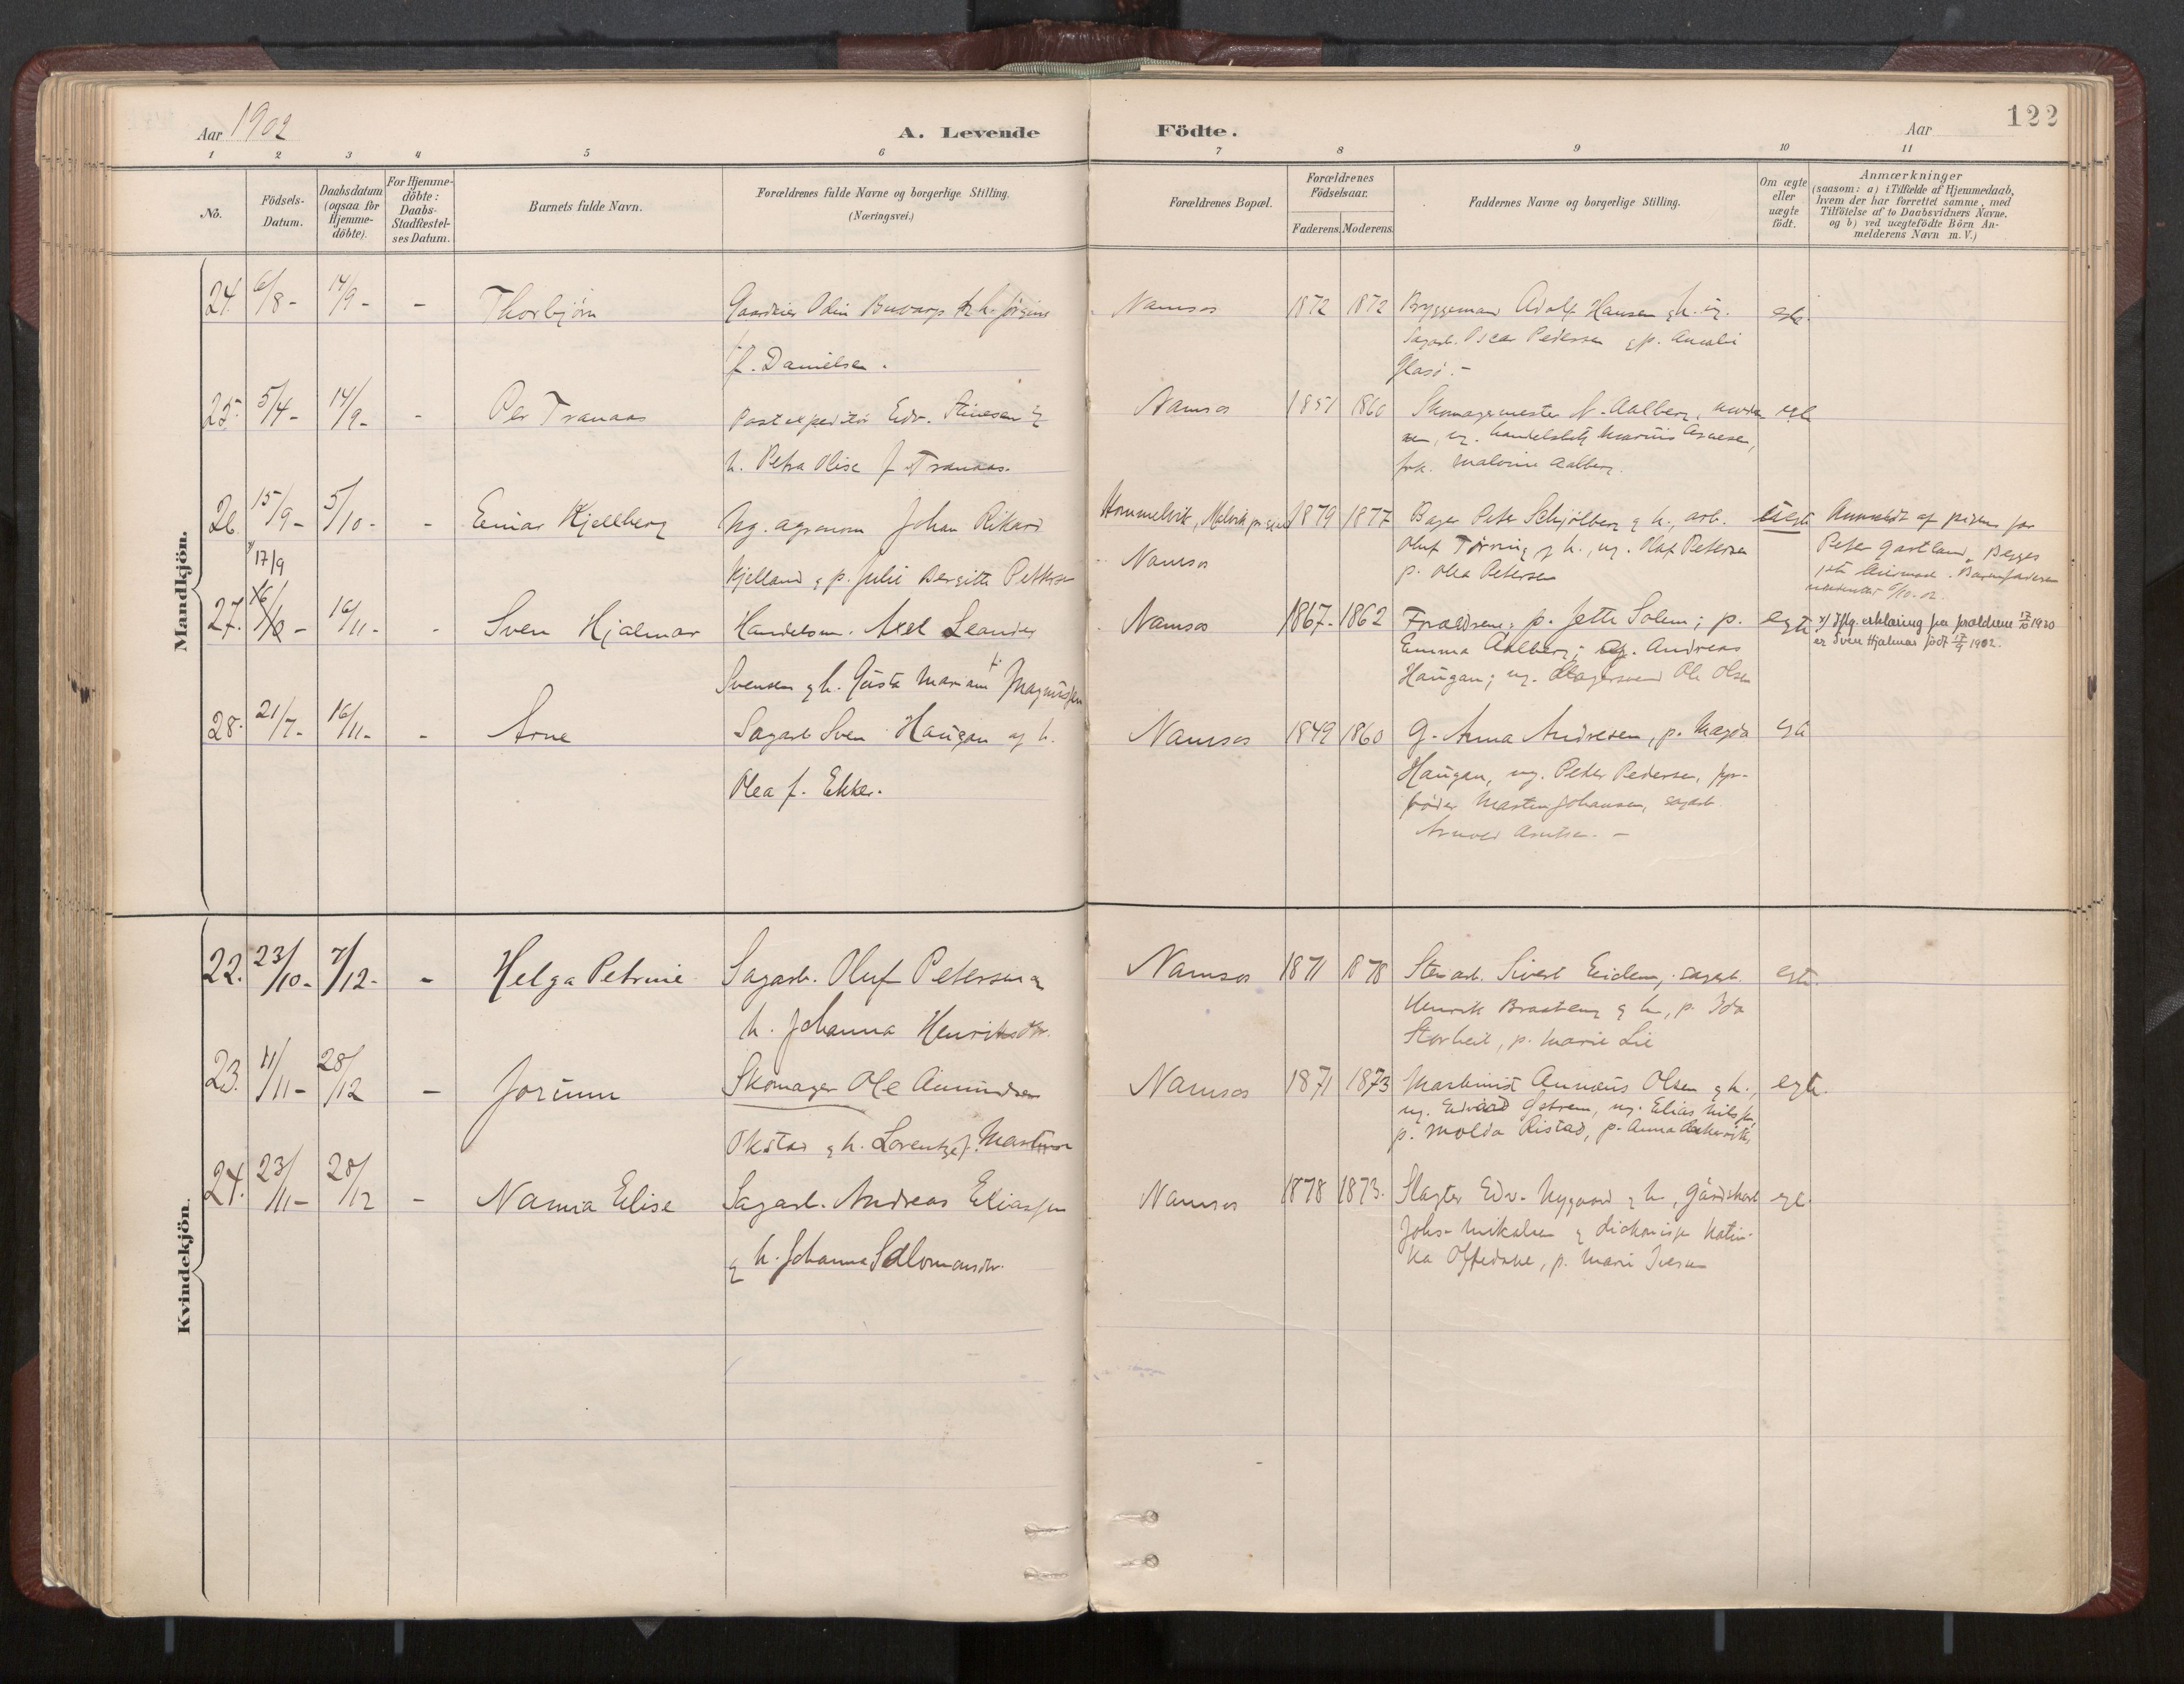 Aar 1902
A. Levende
Födte.
Aar
122
1 2 3 4 5 6 7 8 9 10 11
No.
Födsels-
Datum.
Daabsdatum
(ogsaa for
Hjemme-
döbte).
For Hjemme-
döbte:
Daabs-
Stadfæstel-
ses Datum.
Barnets fulde Navn.
Forældrenes fulde Navne og borgerlige Stilling.
(Næringsvei.)
Forældrenes Bopæl.
Forældrenes
Födselsaar.
Faderens. Moderens.
Faddernes Navne og borgerlige Stilling.
Om ægte
eller
uægte
födt.
Anmærkninger
(saasom: a) i Tilfælde af Hjemmedaab,
hvem der har forrettet samme, med
Tilföielse af to Daabsvidners Navne.
og b) ved uægtefödte Börn An-
melderens Navn m. V.)
Mandkjön.
24. 6/8 - 14/9 - - Thorbjörn
Odin Buvarp
f. Danielsen.
Namsos 1872 1872
Bryggemand Adolf Hansen & h. ug.
Sagarb. Oscar Pedersen & p.
Glasö. -
25. 5/4 - 14/9 - - Per Tranaas
Postexpeditör Edv.
h. Petra Olise f. Tranaas.
Namsos 1857 1860
Skomagermester N. Aalberg,
Marius
frk. Malvine Aalberg.
26. 15/9 - 5/10 - - Einar Kjellberg
Ug. agronom Johan Rikard
Kjelland & p. Julie Bergitte Pettersen
Hommelvik, Malvik
Namsos
1879 1877
Bager Peter Schjölberg & h., arb.
Oluf Törring & h., ug. Olaf Petersen
p. Olea Petersen
uegte
Anmeldt af pigens far
Peter Gartland, Begges
6/10-02.
27. 17/9 16/11 - - Sven Hjalmar
Handelsm. Axel Leander
Svensen & h. Gusta Mariane f. Magnussen
Namsos 1867 - 1862
Forældrene; p. Jette Solem; p.
Emma Aalberg; ug. Andreas
Haugan; ug. Ole Olsen
egte
x) Iflg. erklæring fra forældrene 17/10 1930
er Sven Hjalmar födt 17/9 1902.
28. 21/7 - 16/11 - - Arne
Sagarb Sven Haugan og h.
Olea f. Ekker.
Namsos 1849 1860
G. Anna Andresen, p. Magda
Haugan, ug. Peter Pedersen, fyr-
böder Martin Johansen, sagarb.
egte
Kvindekjön.
22. 23/10 - 7/12 - - Helga Petrine
Sagarb. Oluf Petersen &
h. Johanna Henriksdtr.
Namsos 1871 1878
Stenarb. Sivert Eidem, sagarb.
Henrik Braaten & h., p. Ida
Storheil, p. Marie Lie
egte.
23. 11/11 - 28/12 - Jorunn
Skomager Ole Amundsen
Okstad & h. Lorentze f.
Namsos 1871 1873
Maskinist Annæus Olsen & h.,
ug. Edvard ug. Elias Nilssen,
p. Molda Ristad, p. Anna
egte.
24. 23/11 - 28/12 - Nanna Elise
Sagarb. Andreas Eliassen
& h. Johanna Salomonsdtr.
Namsos 1878 1873.
Slagter Edv. Nygaard & h.,
Johs. Mikalsen & diakonisse Katin-
ka Oftedahl, p. Marie Iversen
egte